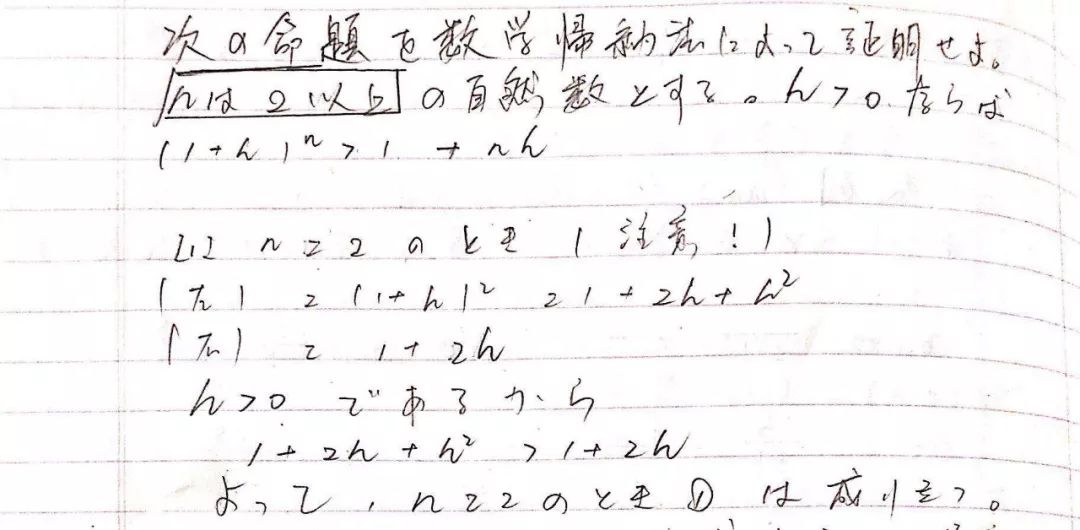 次の命題を数学帰納法によって証明せよ。
nは2以上の自然数とする。h>0ならば
(1+h)^n>1+nh
[1] n=2のとき (注意!)
(左)=(1+h)²=1+2h+h²
(右)=1+2h
h>0であるから
1+2h+h²>1+2h
よって、n=2のとき①は成り立つ。